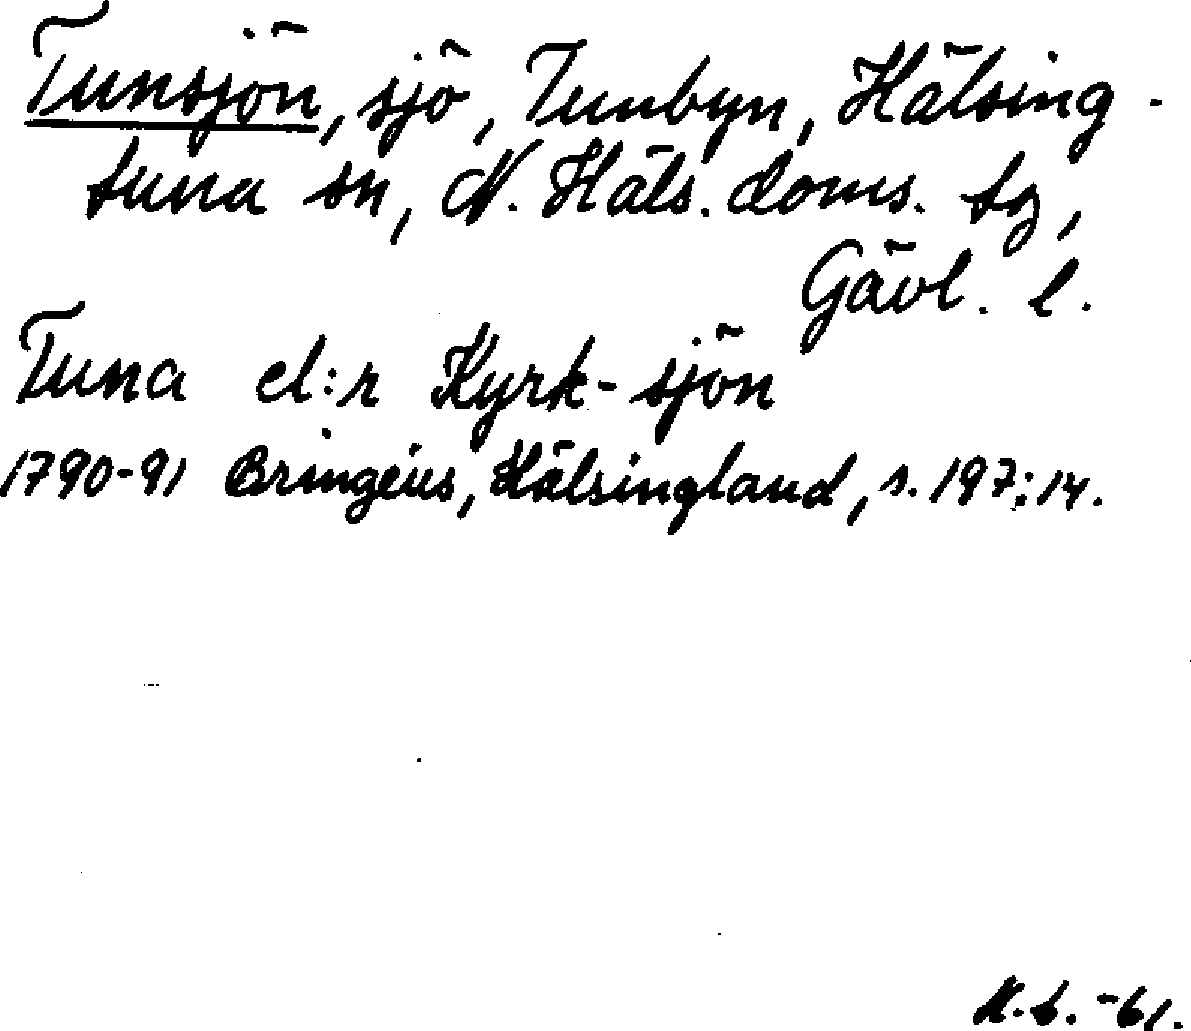 Tunsjön, sjö, Tunbyn, Hälsing-
tuna sn, N. Häls. doms. tg,
Gävl. l.
Tuna el:r Kyrk-sjön
1790-91 Bringéus, Hälsingland, s. 197:14.
K.b. -61.